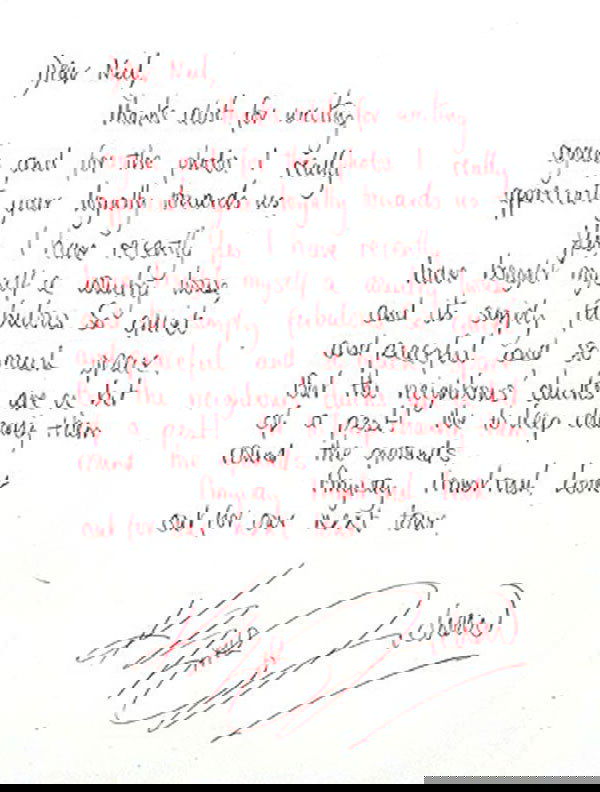 Dear Neil,
Thanks alot for writing
again and for the photos I really
appreciate your loyalty towards us
I have recently
bought myself a country house
and its simply fabulous so quiet
and peaceful and so much space
But the neighbours ducks are a bit
of a pest! keep chasing them
round the grounds
Anyway look
out for our next tour